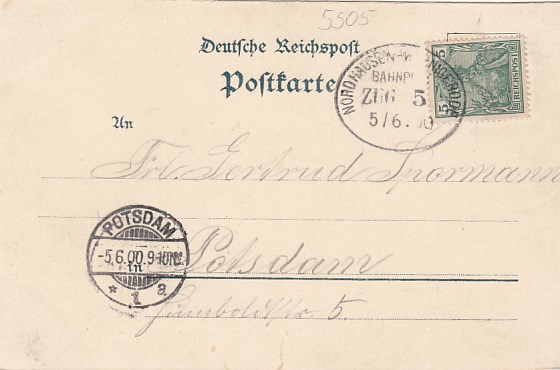 5505
Deutsche Reichspost
Postkarte
NORDHAUSEN-WERNIGERODE
BAHNPO
ZUG 5
5/6.00
5 5
REICHSPOST
An
Frl. Gertrud Spormann
Potsdam
Humboldtstr. 5.
POTSDAM
-5.6.00.9-10N.
in
* 1 a